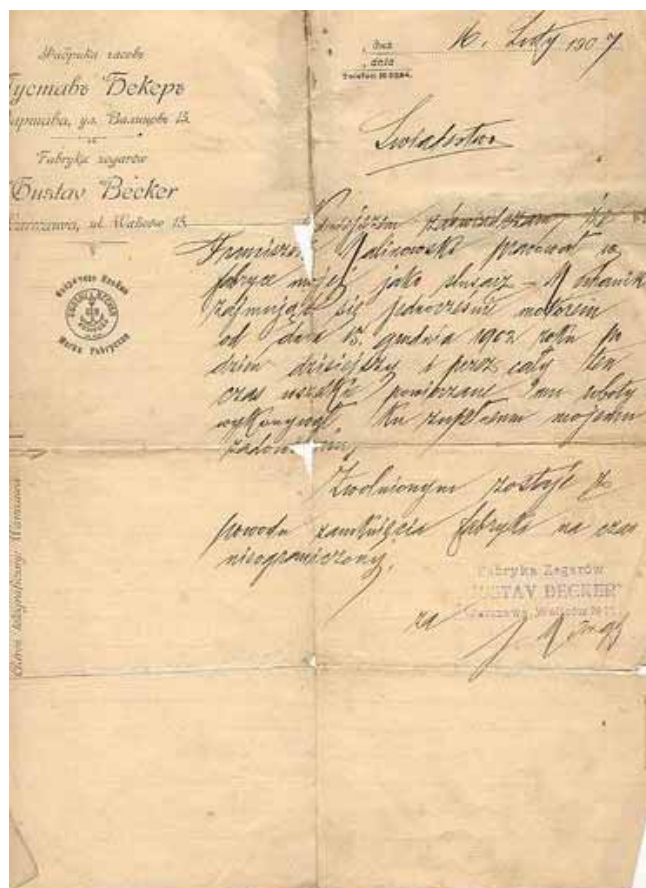 Фабрика часовъ
Густавъ Бекеръ
Варшава, ул. Валицовъ 13.
Fabryka zegarów
Gustav Becker
Warszawa, ul. Waliców 13.
дня
dnia
16. Luty 1907
Telefon
Świadectwo
Niniejszem zaświadczam, że
Franciszek Malinowski pracował w
fabryce mojej jako ślusarz – Mechanik
zajmując się jednocześnie motorem
od dnia 15. grudnia 1902 roku po
dzień dzisiejszy i przez cały ten
czas wszelkie powierzane Mu roboty
wykonywał ku zupełnemu mojemu
zadowoleniu,
Zwolnionym zostaje z
powodu zamknięcia fabryki na czas
nieograniczony.
Marka Fabryczna
Adres telegraficzny: Warszawa
Fabryka Zegarów
GUSTAV BECKER
Warszawa, Waliców № 13
za